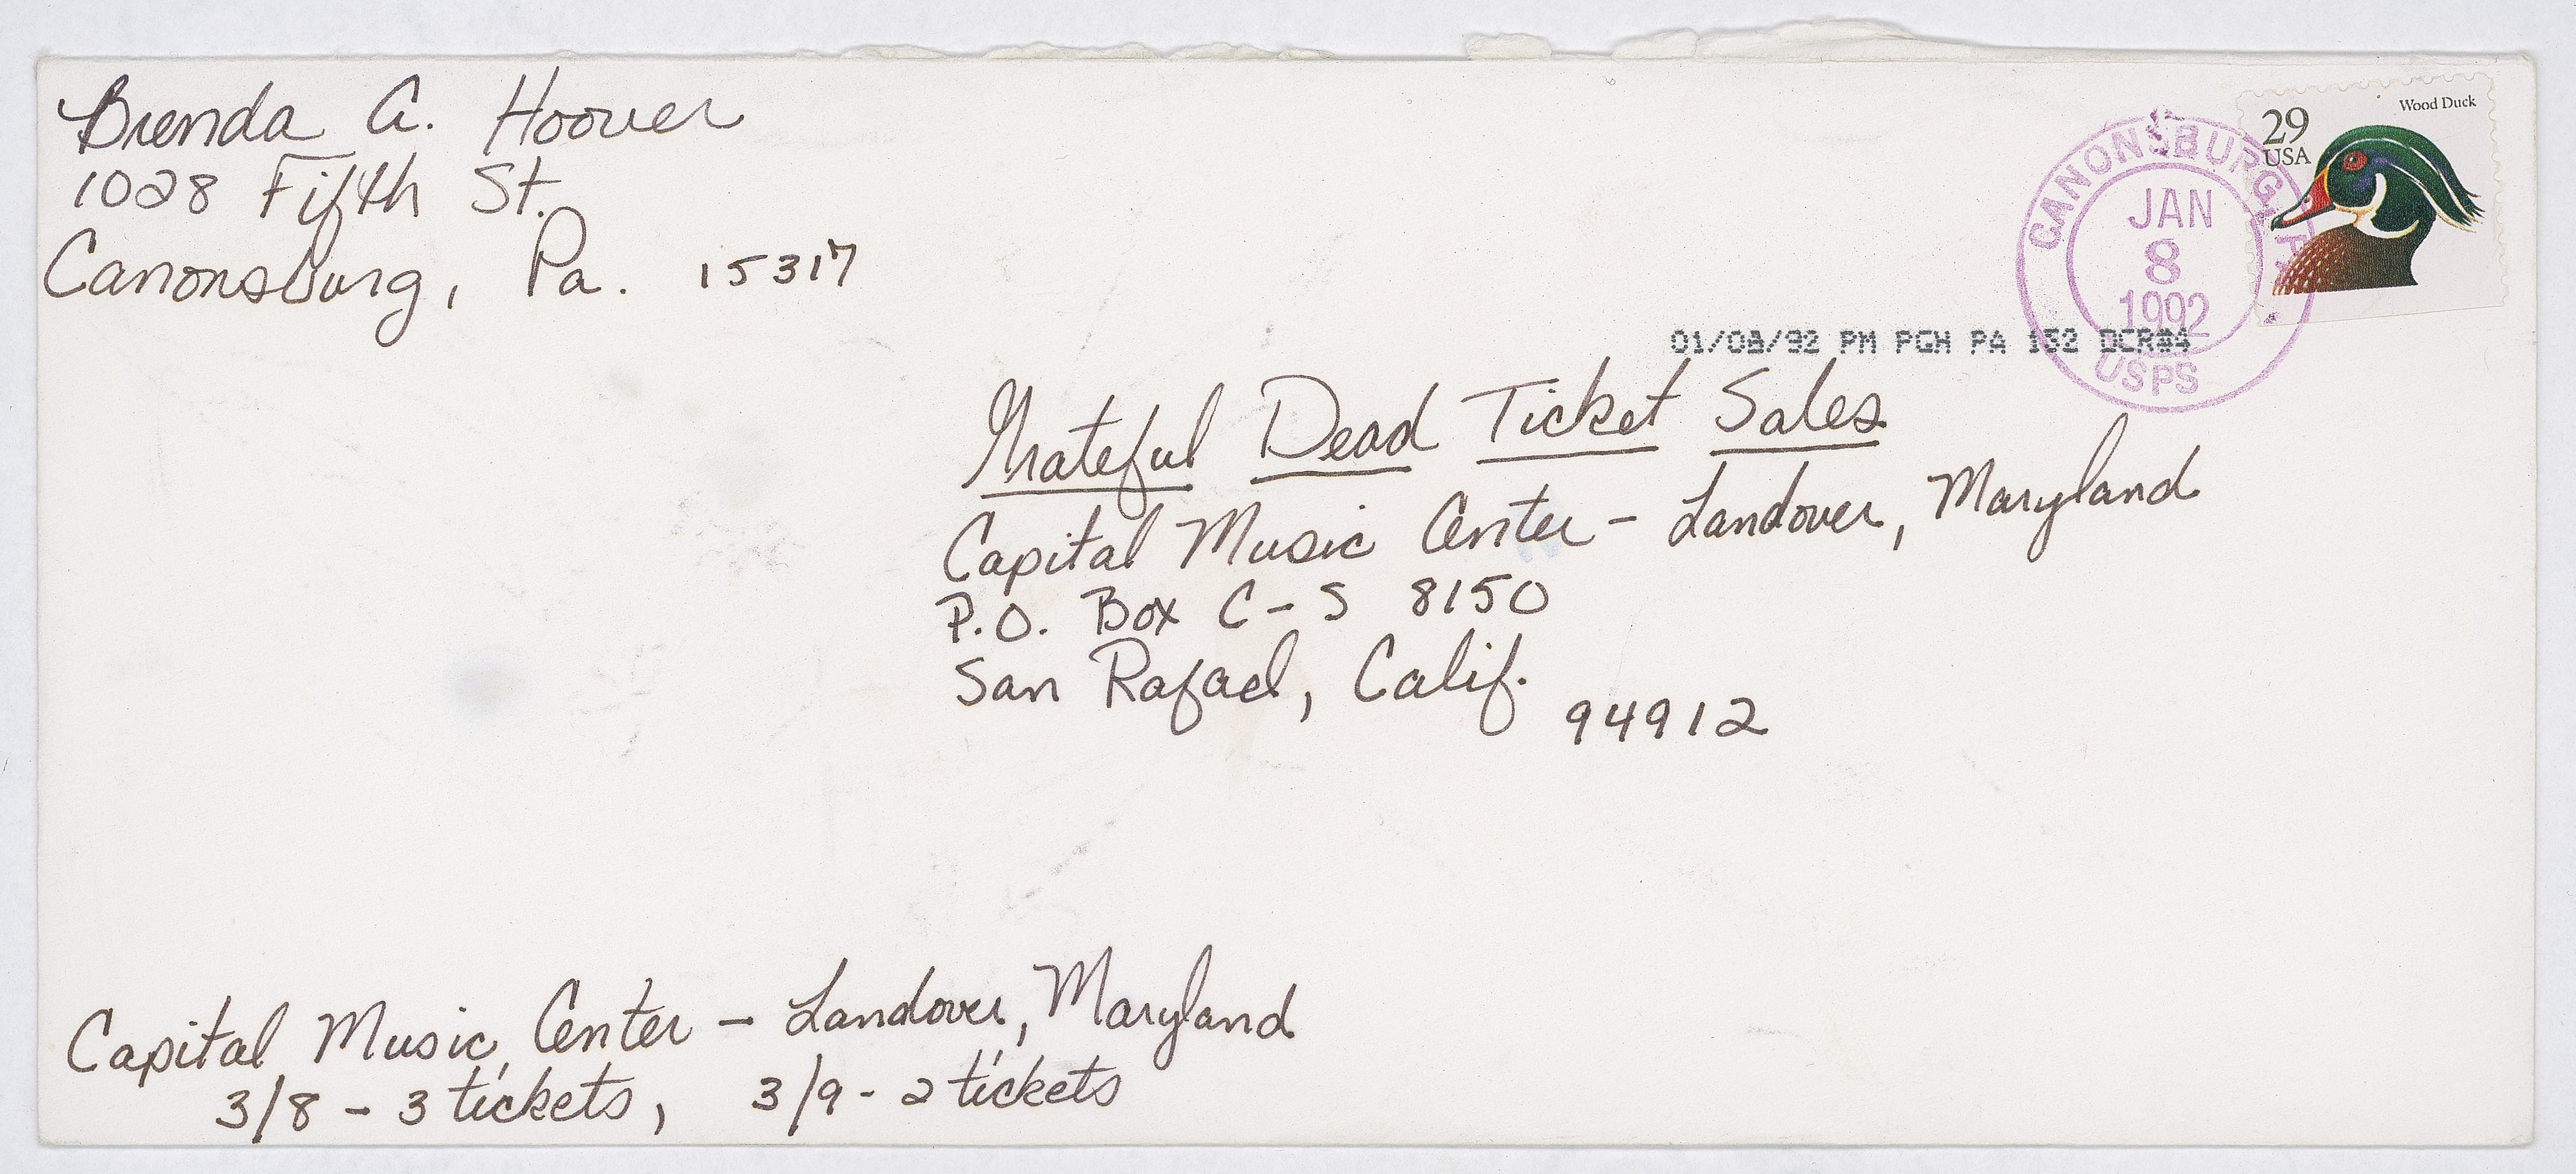 Brenda A. Hoover
1028 Fifth St.
Canonsburg, Pa. 15317
Wood Duck
29
USA
CANONSBURG, PA
JAN
8
1992
USPS
01/08/92 PM PGH PA 152 DCR#4
Grateful Dead Ticket Sales
Capital Music Center - Landover, Maryland
P.O. Box C-S 8150
San Rafael, Calif.
94912
Capital Music Center - Landover, Maryland
3/8 - 3 tickets, 3/9 - 2 tickets